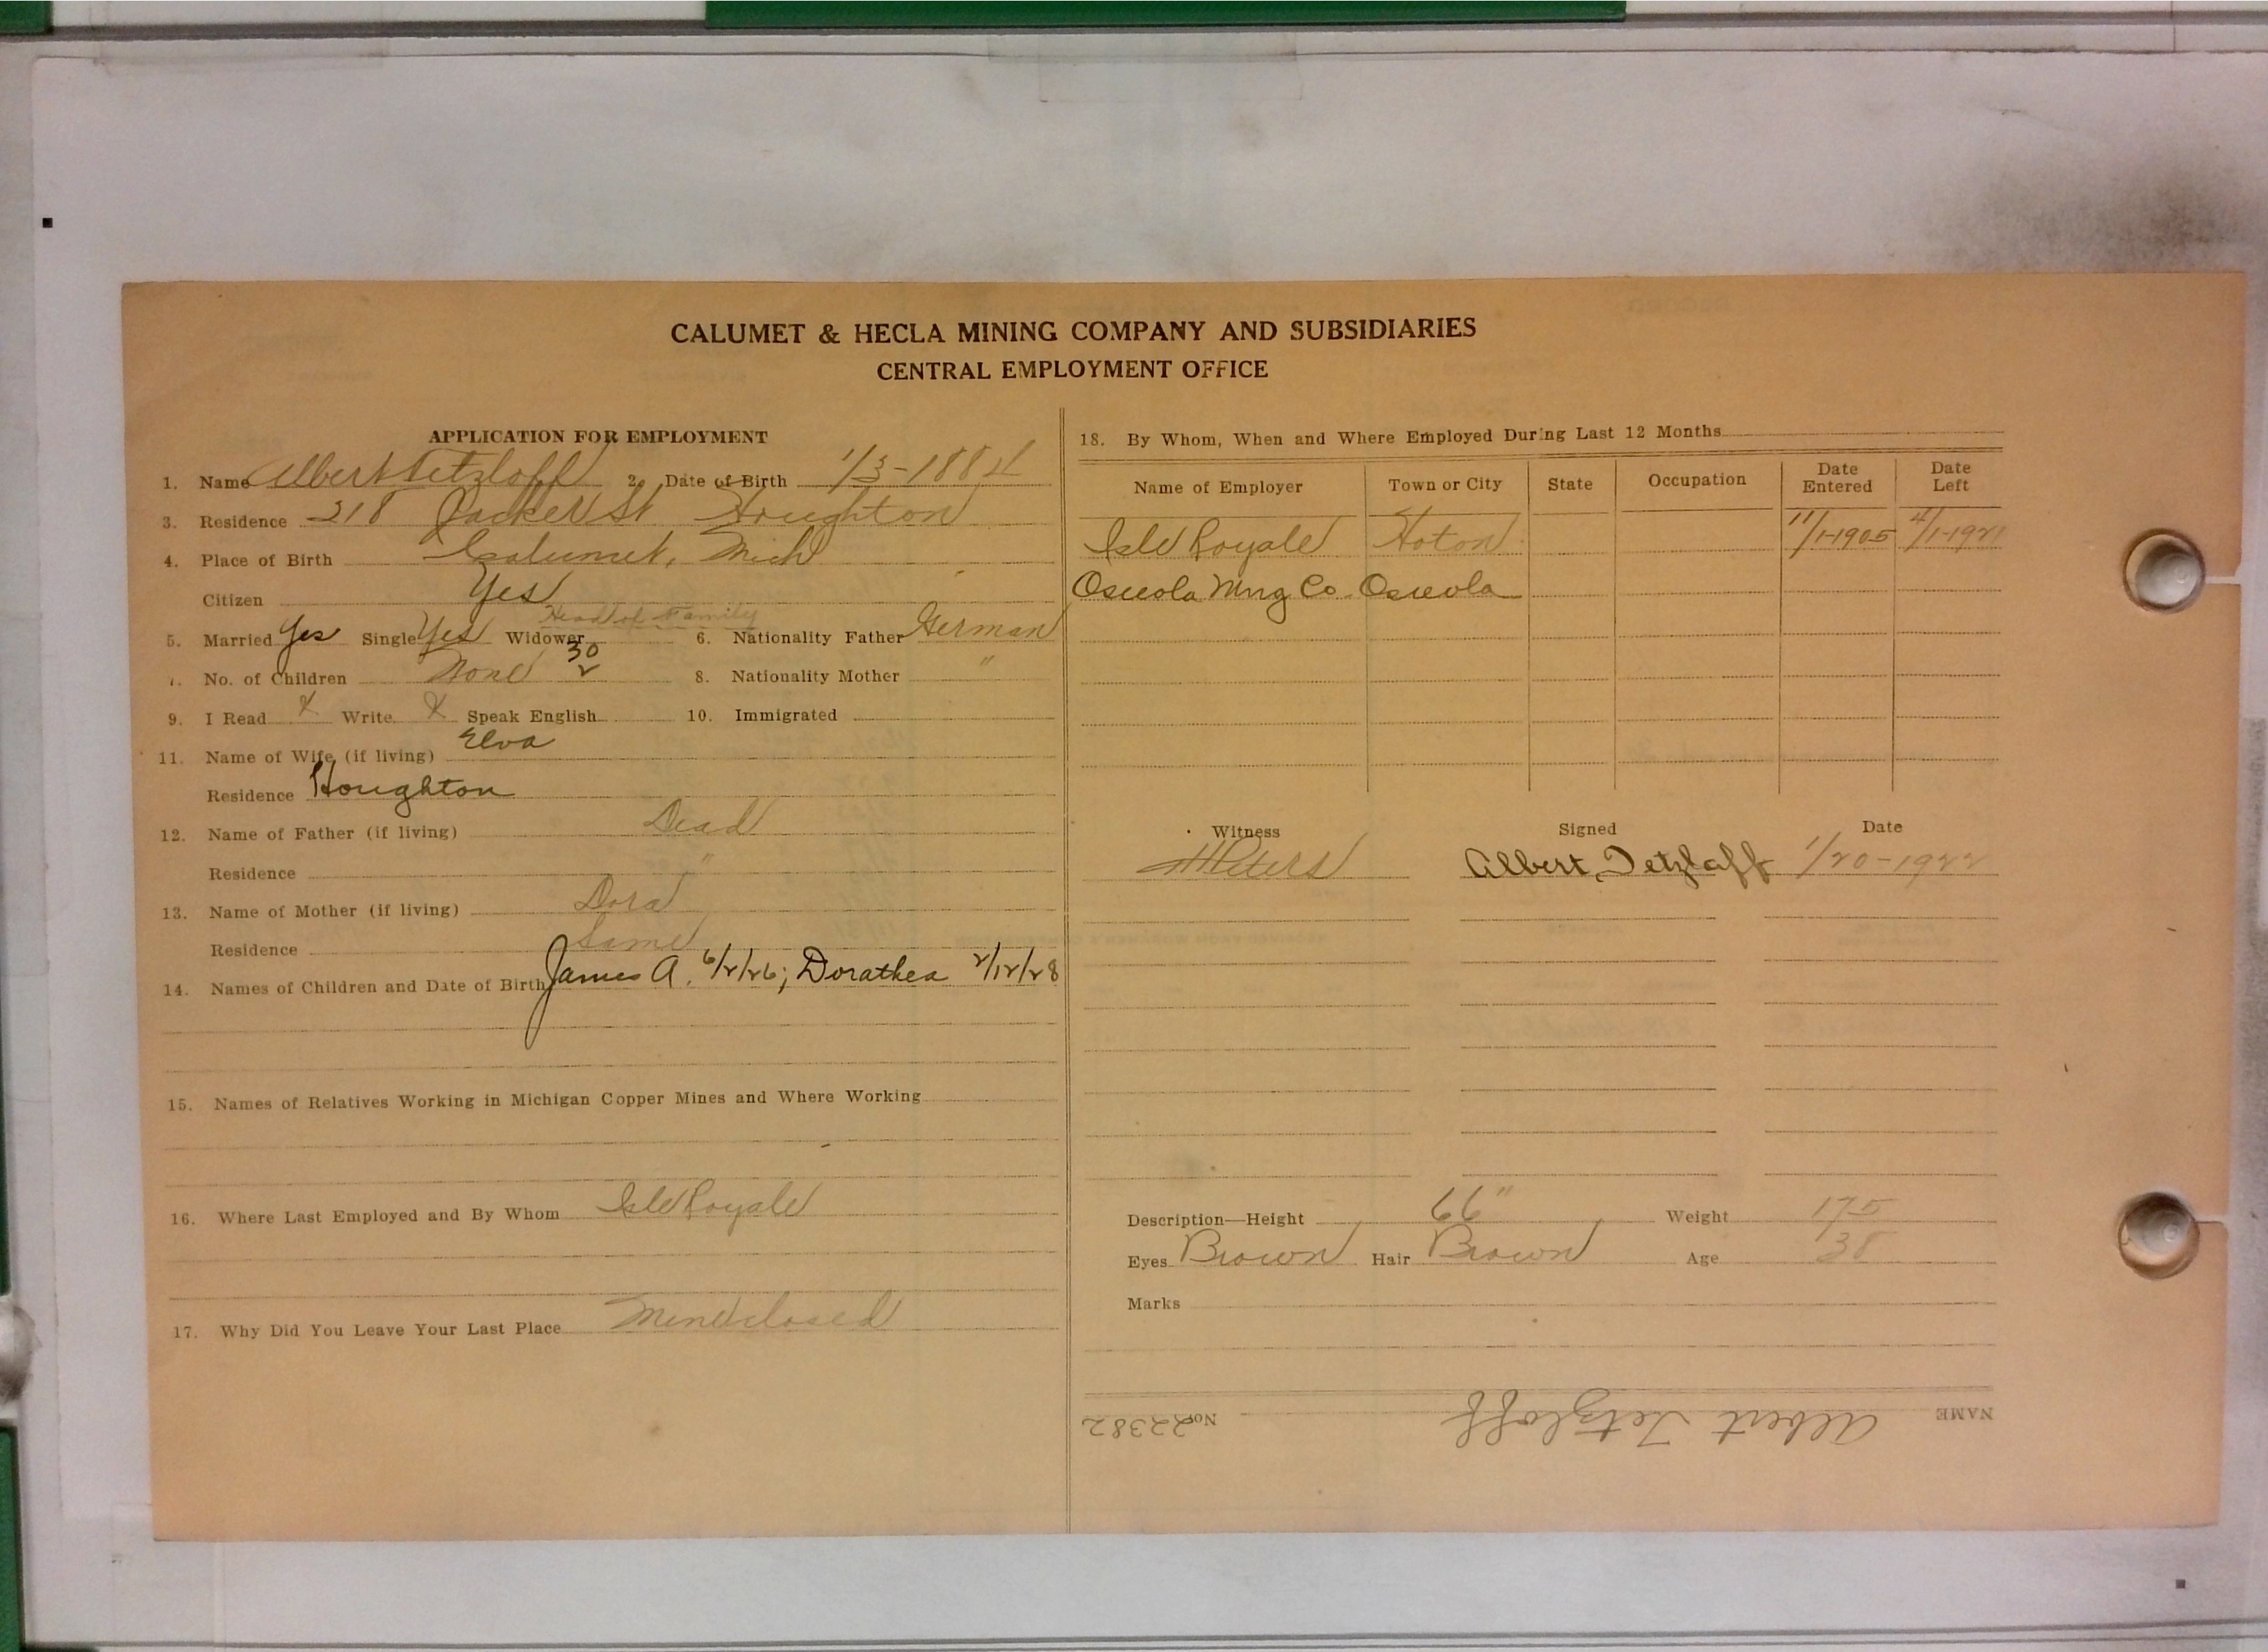 CALUMET & HECLA MINING COMPANY AND SUBSIDIARIES
CENTRAL EMPLOYMENT OFFICE
APPLICATION FOR EMPLOYMENT
1. Name Albert Tetzloff 2. Date of Birth 1/3-1884
3. Residence 218 Jacker St Houghton
4. Place of Birth Calumet, Mich
Citizen Yes
Head of Family
5. Married Yes Single Yes Widower 6. Nationality Father German
30
7. No. of Children None 2 8. Nationality Mother "
9. I Read X Write X Speak English 10. Immigrated
11. Name of Wife (if living) Elva
Residence Houghton
12. Name of Father (if living) Dead
Residence "
13. Name of Mother (if living) Dora
Residence Same
14. Names of Children and Date of Birth James A. 6/2/26; Dorathea 2/12/28
15. Names of Relatives Working in Michigan Copper Mines and Where Working
16. Where Last Employed and By Whom Isle Royale
17. Why Did You Leave Your Last Place Mine closed
18. By Whom, When and Where Employed During Last 12 Months
Name of Employer Town or City State Occupation Date Entered Date Left
Isle Royale Hoton 11/1-1905 4/1-1921
Osceola Mng Co. Osceola
Witness Signed Date
Peters Albert Tetzlaff 1/20-1922
Description—Height 66" Weight 175
Eyes Brown Hair Brown Age 38
Marks
NAME Albert Tetzloff No. 22382